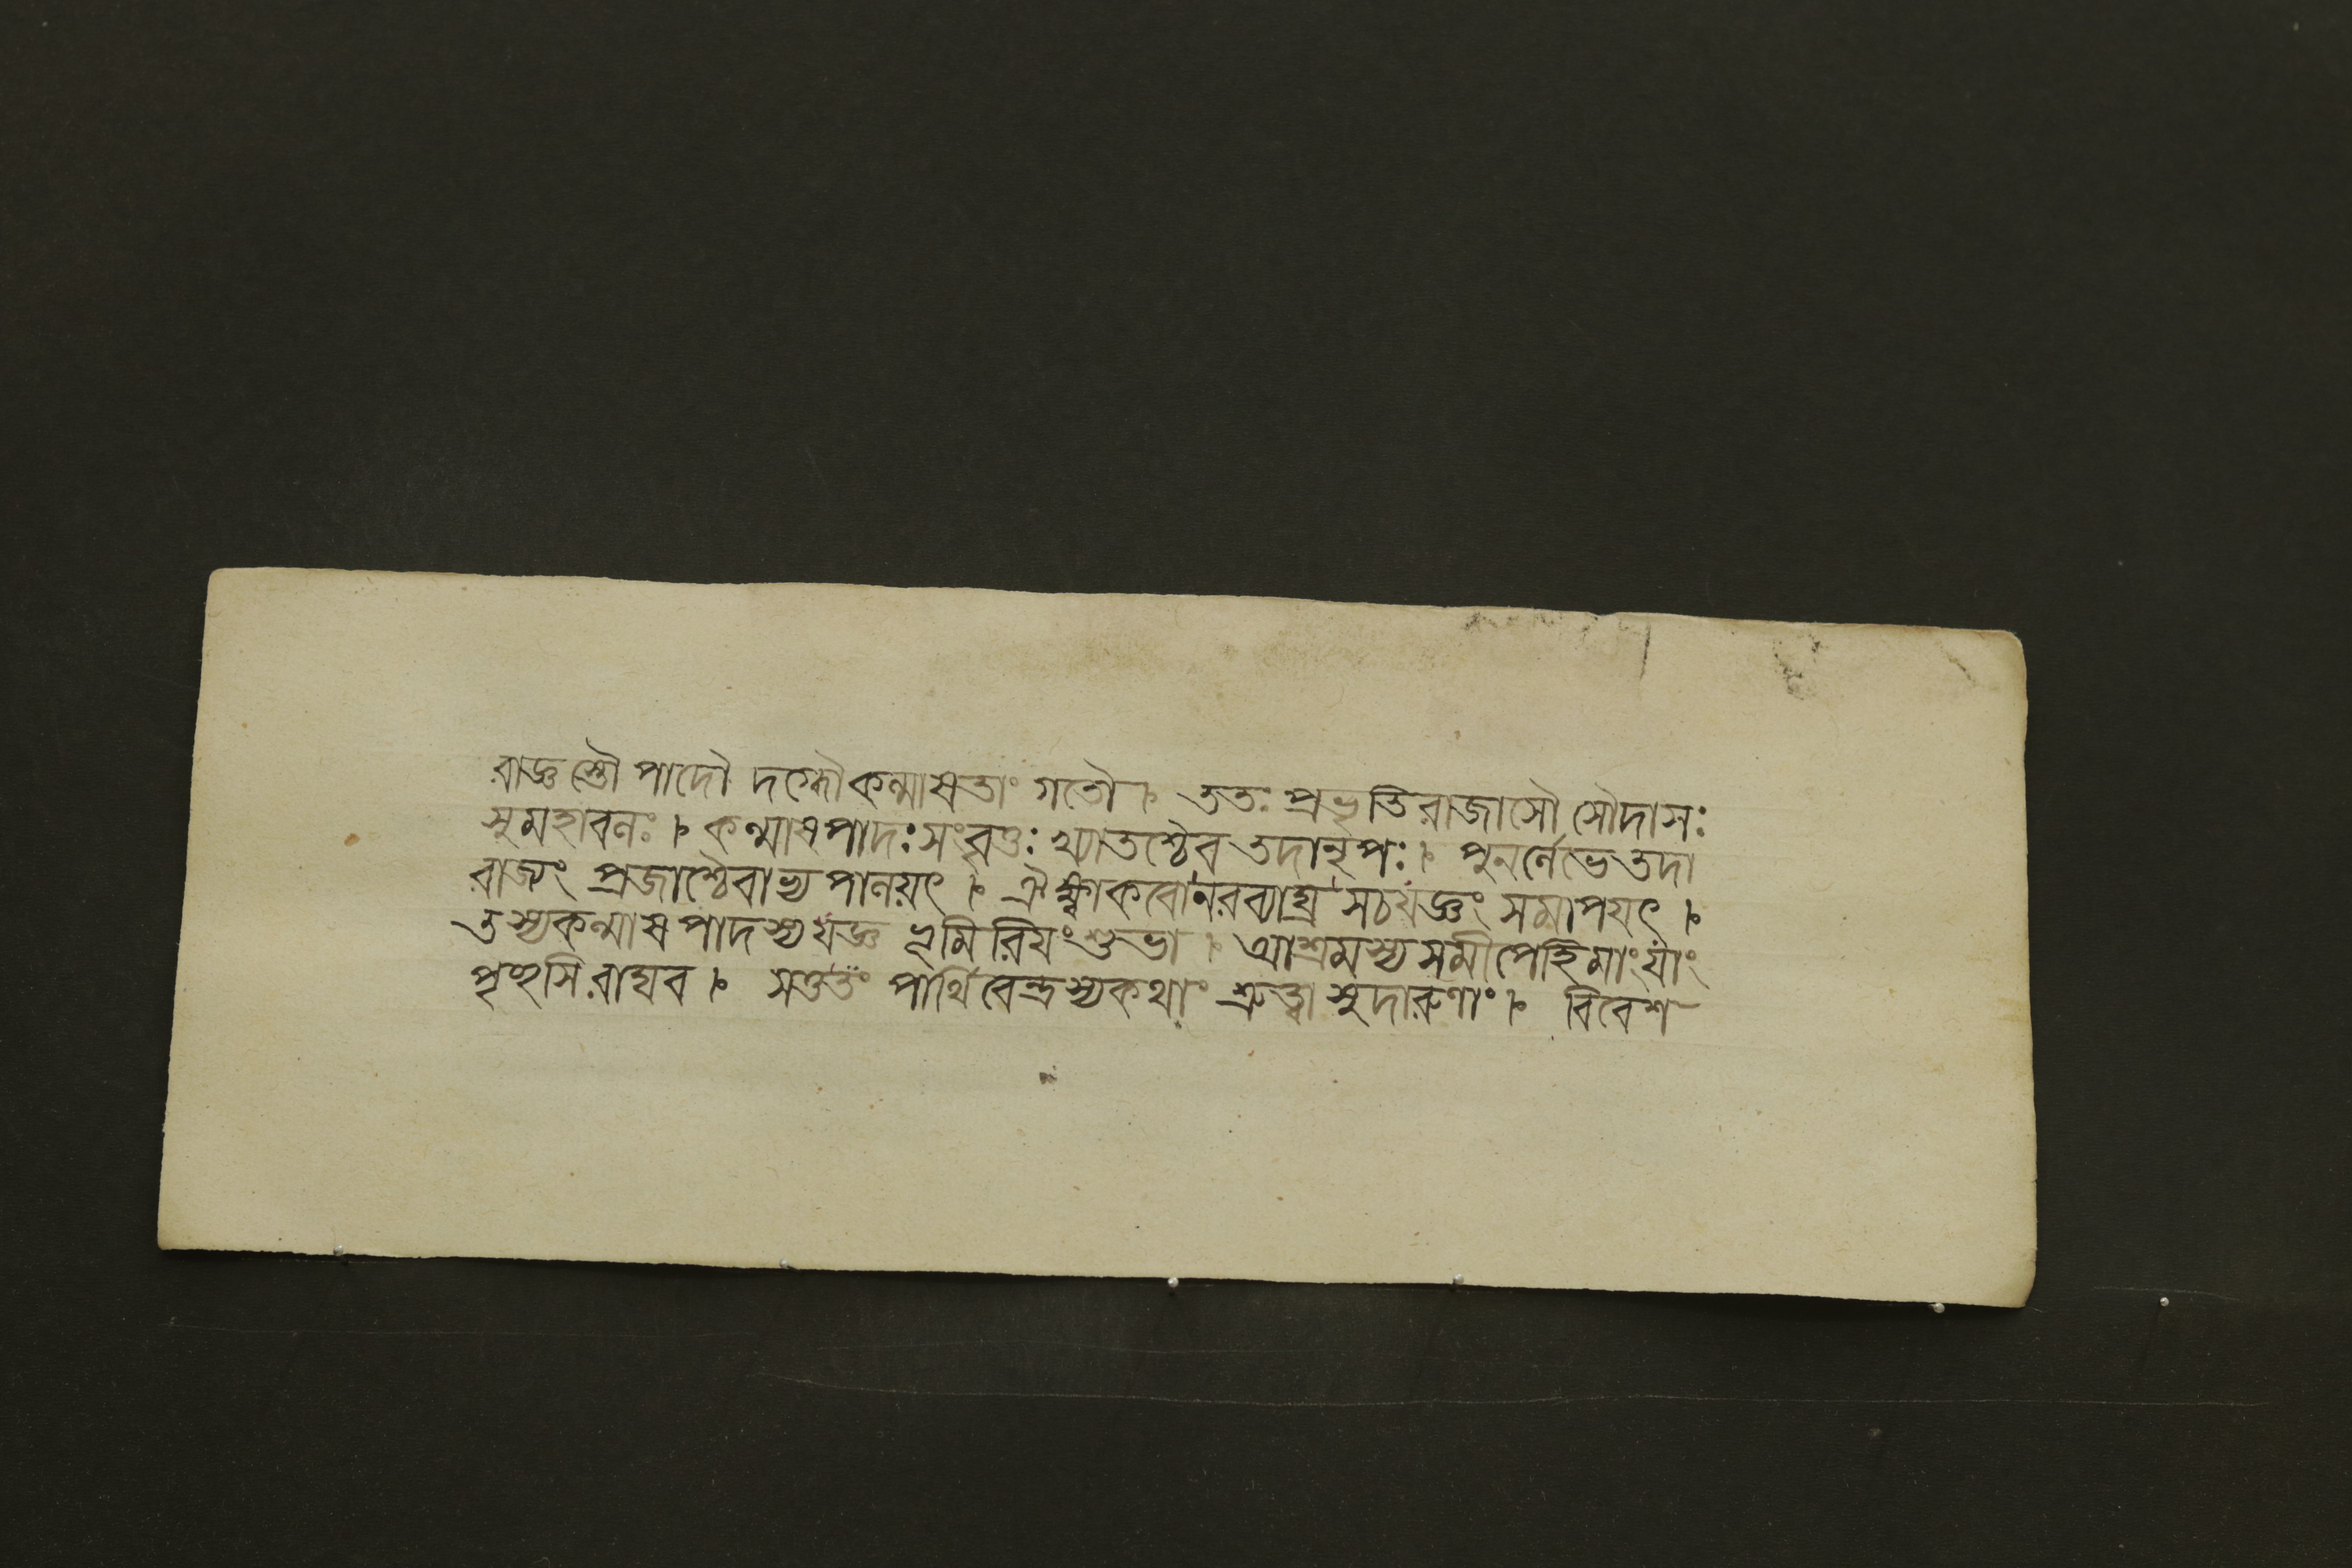 রাজ্ঞস্তৌ পাদৌ দগ্ধৌ কল্মাষতাং গতৌ। ততঃ প্রভৃতি রাজাসৌ সৌদাসঃ
সুমহাবলঃ। কল্মাষপাদঃ সংবৃত্তঃ খ্যাতশ্চৈব তদা নৃপঃ। পুনর্লেভে তদা
রাজ্যং প্রজাশ্চৈবাভ্যপালয়ৎ। ঐক্ষ্বাকবো নরব্যাঘ্র সচযজ্ঞং সমাপযৎ।
তস্যকল্মাষপাদস্য যজ্ঞভূমিরিযং শুভা। আশ্রমস্য সমীপেহিমাং যাং
পৃচ্ছসি রাঘব। সতুতং পার্থিবেন্দ্রস্য কথাং শ্রুত্বা সুদারুণাং। বিবেশ